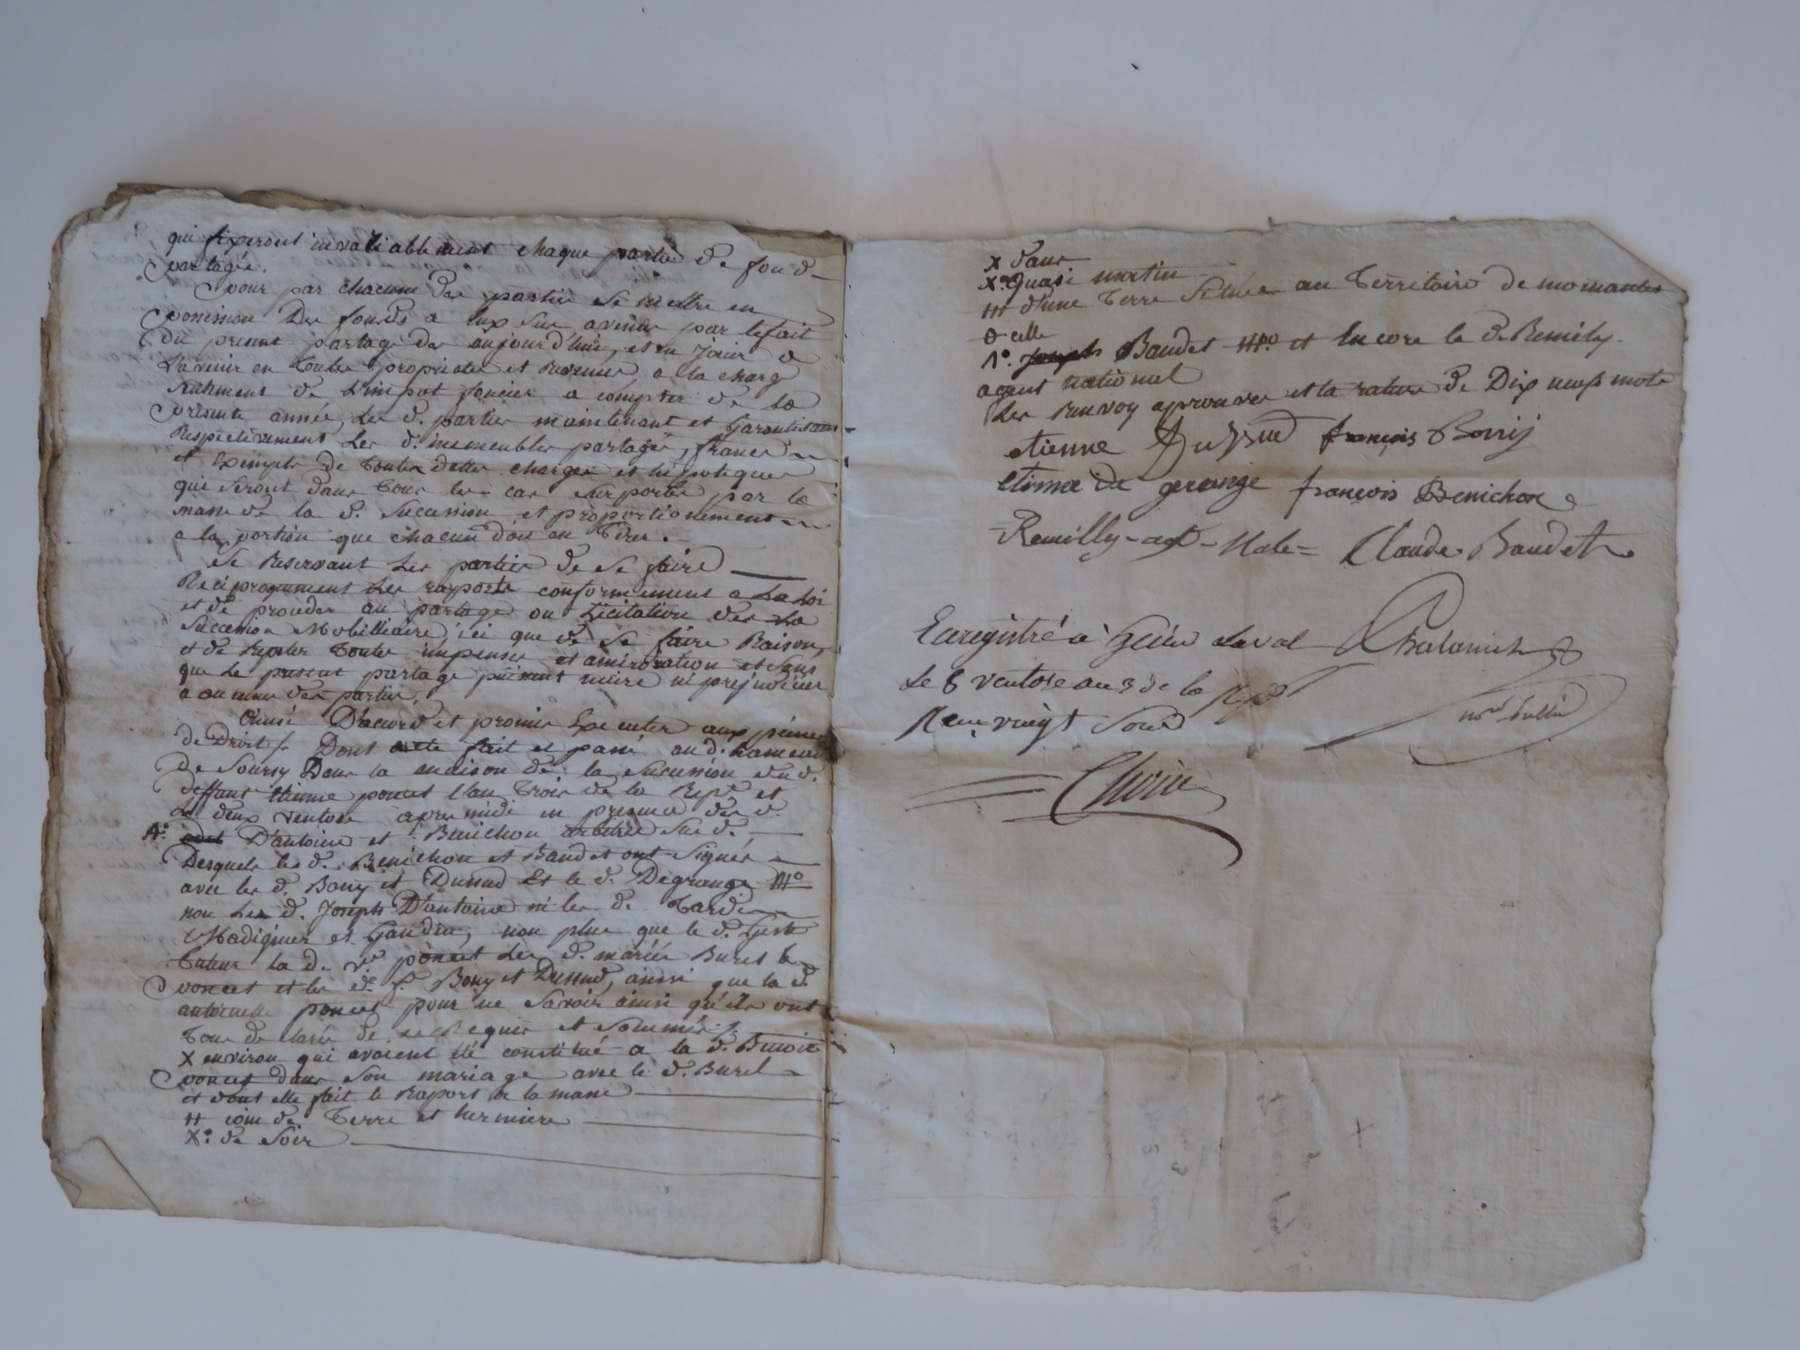 qui fixeront invaliablement chaque partie de fond
partagée.
pour par chacune des parties se mettre en
possession Des fonds a eux sus avenus par le fait
du present partage des aujourd'hui, et en jouir a
L'avenir en toutes proprietes et revenus, a la charge
de L'impot foncier a compter de la
presente année, Les d. parties maintenant et Garantissant
Respectivement Les d. immeubles partagés, francs
et Exempts de toutes dettes charges et hipoteques
qui seront dans tous les cas suportés par la
masse de la d. Succession et proportionement
a la portion que chacun doit en
Se Reservant Les parties de se faire
Reciproquement Les raports conformement a La Loi
et de proceder au partage ou Licitation des La
Succession Mobilliaire, ici que de Se faire Raison,
et de toutes impenses et amelioration et sans
que Le present partage puissent nuire ni prejudicier
a aucune des parties,
Ainsi D'acord et promis Executer aux peines
de Droits. Dont acte fait et passé au d. hameau
de Soursy Dans la maison de la Succession du d.
deffunt Etienne poncet L'an trois de la Repe et
Le deux ventose apres midi en presence des d.
A.° D'antoine et Benichon arbitres sus d.
Desquels les d. Benichon et Baudet ont Signés
avec les d. Bouy et Dussud Et le d. Degrange
non Les d. Joseph D'antoine ni les d. Tardi
Madignier et Gandin, non plus que le d.
tuteur la d. ve poncet Les d. mariés Buret
poncet et les de fe Bouy et Dussud, ainsi que la d.
antoinette poncet pour ne Savoir ainsi qu'ils ont
tous declaré de ce Requis et Sommés
X environ qui avoient été constitué a la d. Benoite
poncet dans Son mariage avec le d. Buret
et dont elle fait le Raport a la masse
# coin de Terre et hermiere
X.° de Soir
X dans
X.° quasi matin
d'une Terre Située au Territoire de mornantes
celle
1.° Joseph Baudet et Encore le d. Remily
agent national
Les Renvoy aprouvés et la rature de Dix neuf mots
etienne Dussud françois Bouy
etienne de grange françois Benichon
Remilly agt Nale Claude Baudet
Enregistré a Laval
Le 8 ventose an 3 de la Rep
Reçu vingt sous